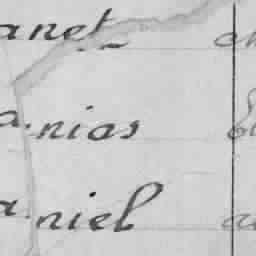 anet
a.nias
a.niel